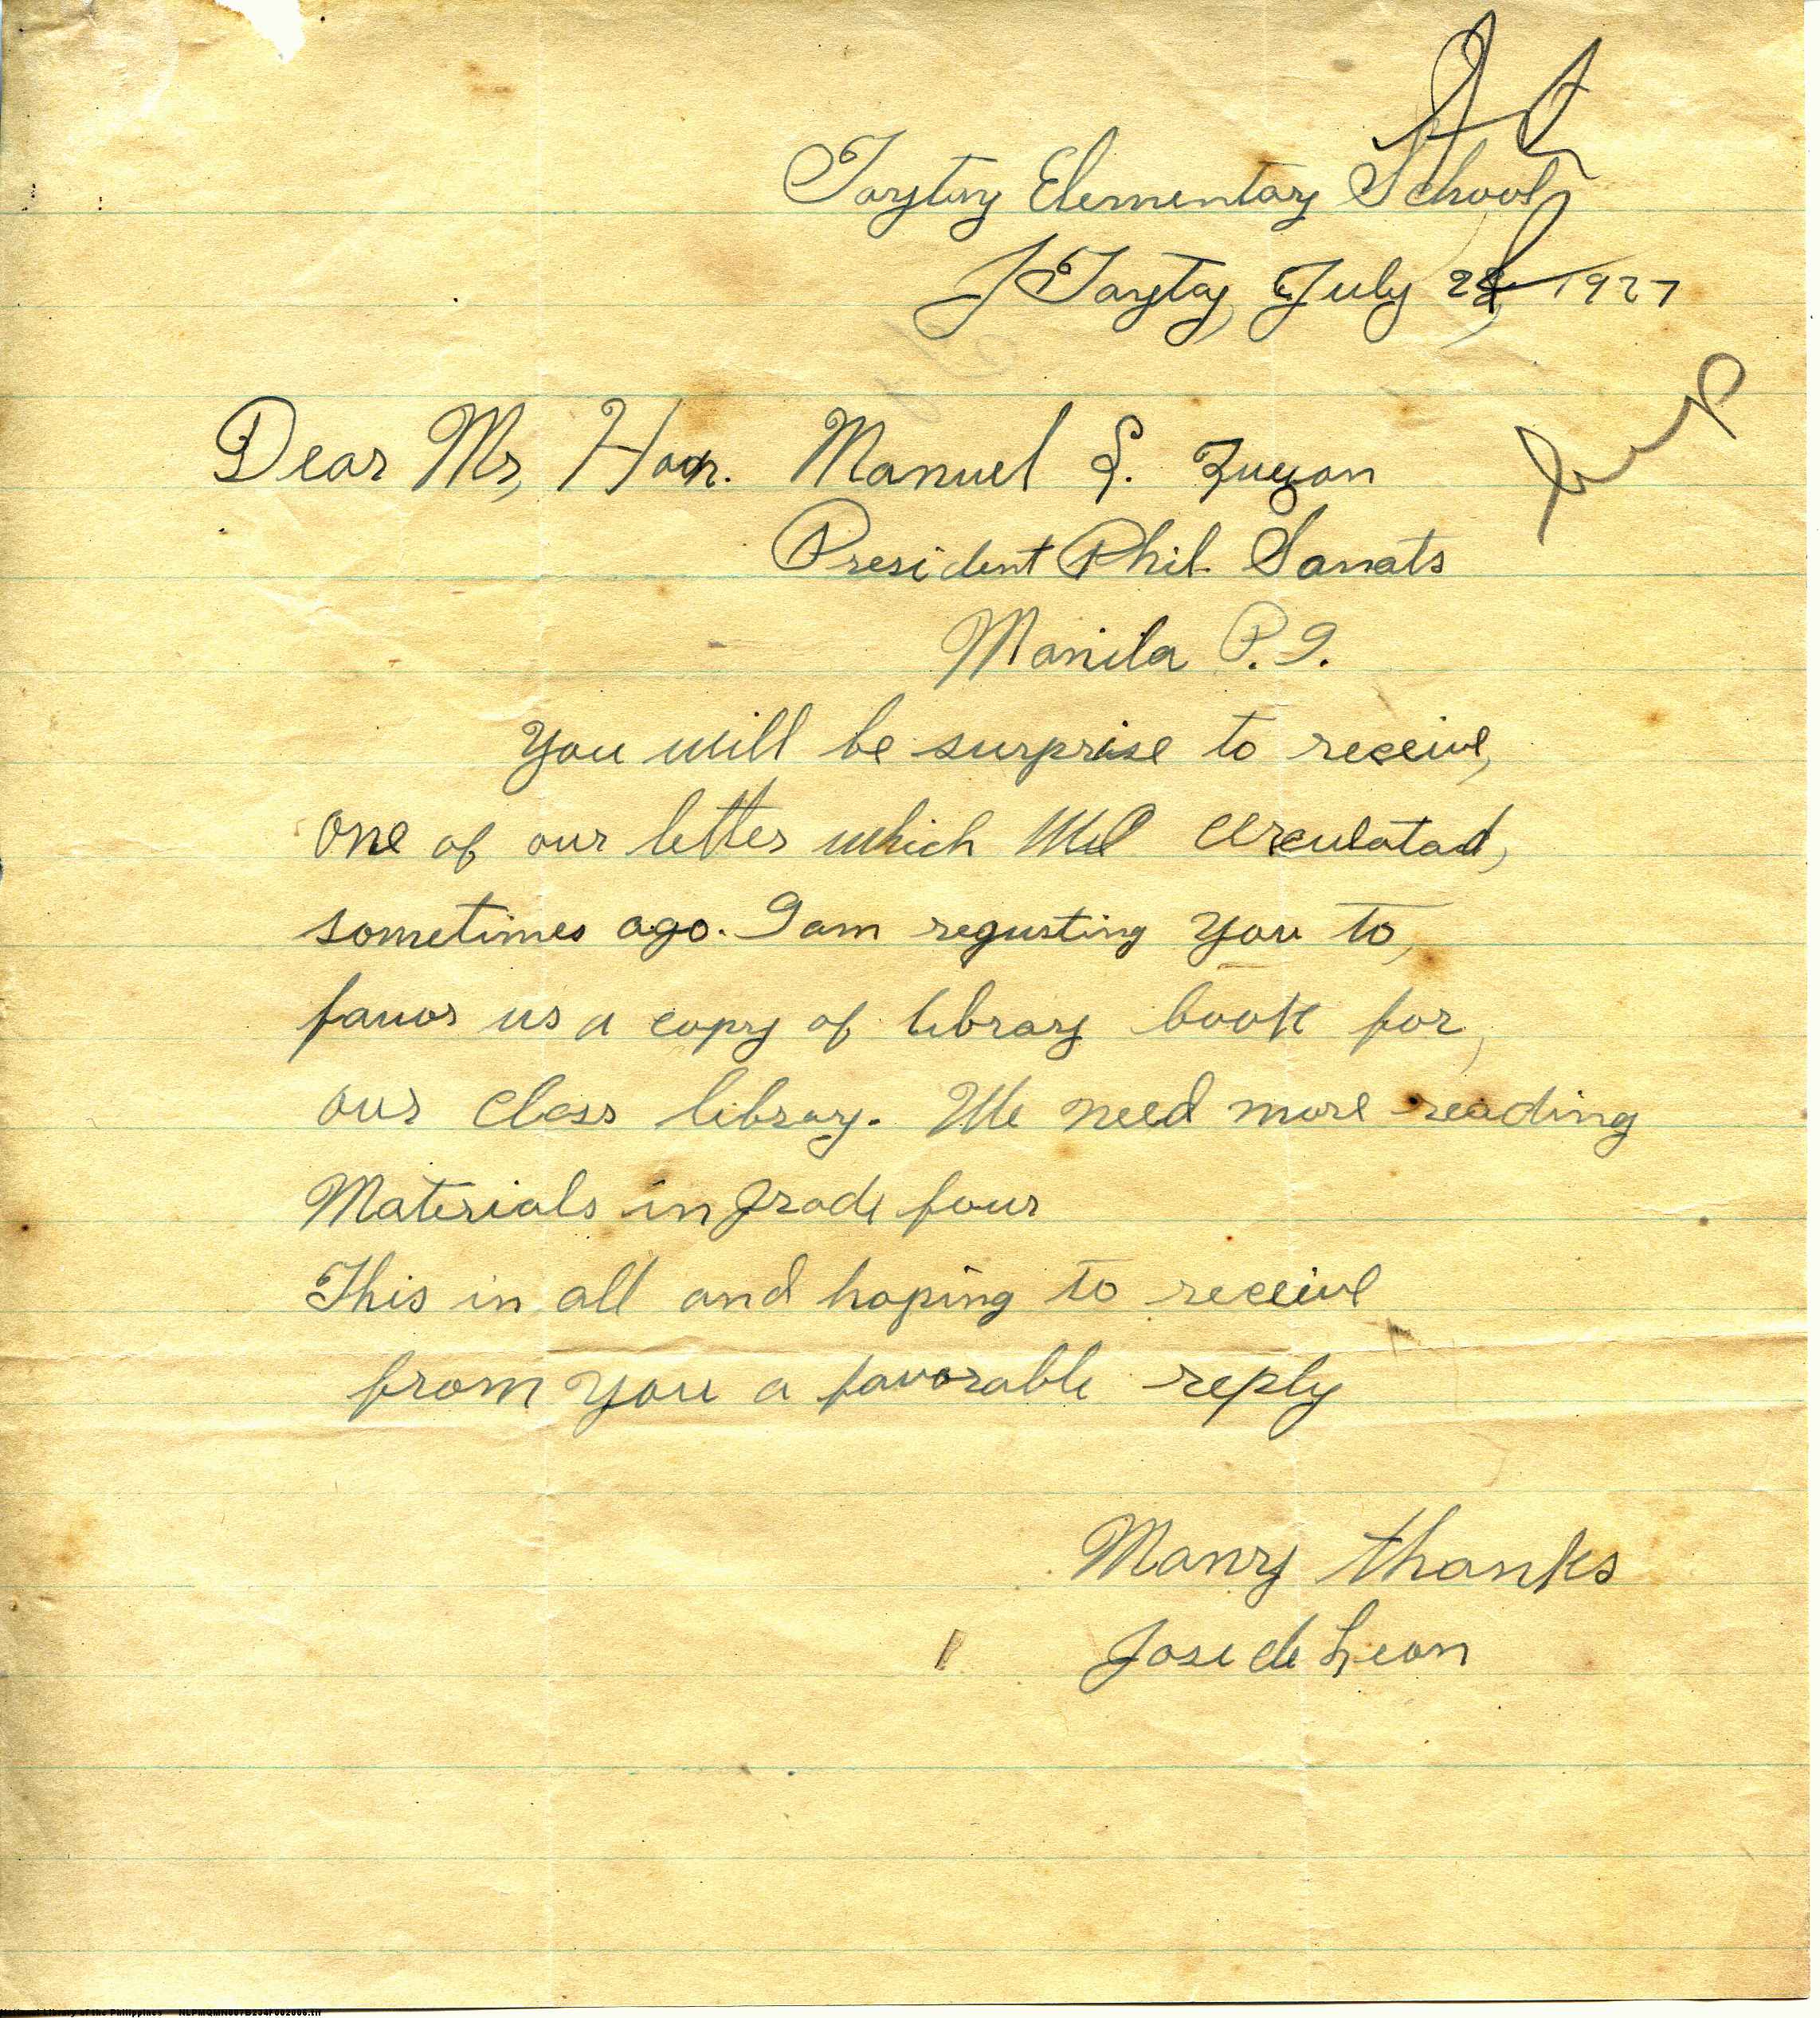 Taytay Elementary School
Taytay July 28, 1927
Dear Mr, Hon. Manuel L. Quezon
President Phil. Sanats
Manila P.I.
You will be surprise to receive,
one of our letter which we circulatad,
sometimes ago. I am requsting you to,
favor us a copy of library book for,
our class library. We need more reading
Materials in grade four
This in all and hoping to receive
from you a favorable reply
Many thanks
Jose de Leon
National Library of the Philippines